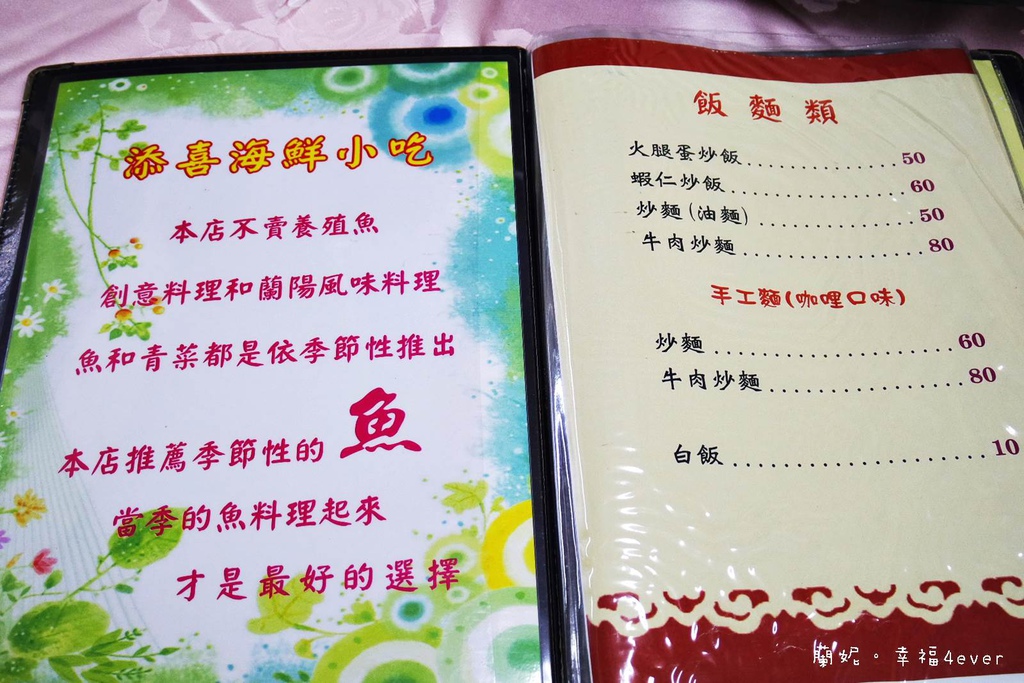 添喜海鮮小吃
本店不賣養殖魚
創意料理和蘭陽風味料理
魚和青菜都是依季節性推出
本店推薦季節性的 魚
當季的魚料理起來
才是最好的選擇
飯麵類
火腿蛋炒飯....................50
蝦仁炒飯....................60
炒麵(油麵)....................50
牛肉炒麵....................80
手工麵(咖哩口味)
炒麵....................60
牛肉炒麵....................80
白飯....................10
蘭妮。幸福4ever